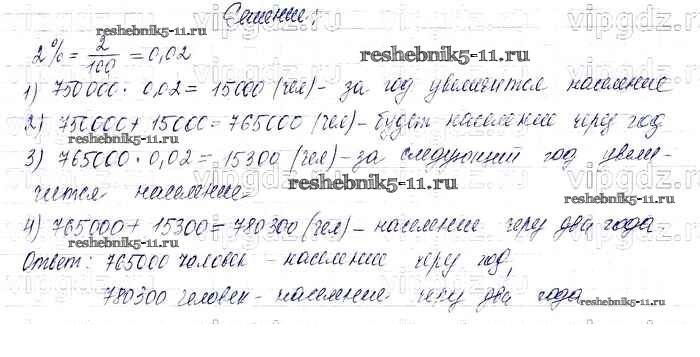 Решение:
2% = 2/100 = 0,02
1) 750000 · 0,02 = 15000 (чел) - за год увеличится население
2) 750000 + 15000 = 765000 (чел) - будет население через год
3) 765000 · 0,02 = 15300 (чел) - за следующий год увели-
чится население
4) 765000 + 15300 = 780300 (чел) - население через два года.
Ответ: 765000 человек - население через год,
780300 человек - население через два года
reshebnik5-11.ru
reshebnik5-11.ru
reshebnik5-11.ru
reshebnik5-11.ru
reshebnik5-11.ru